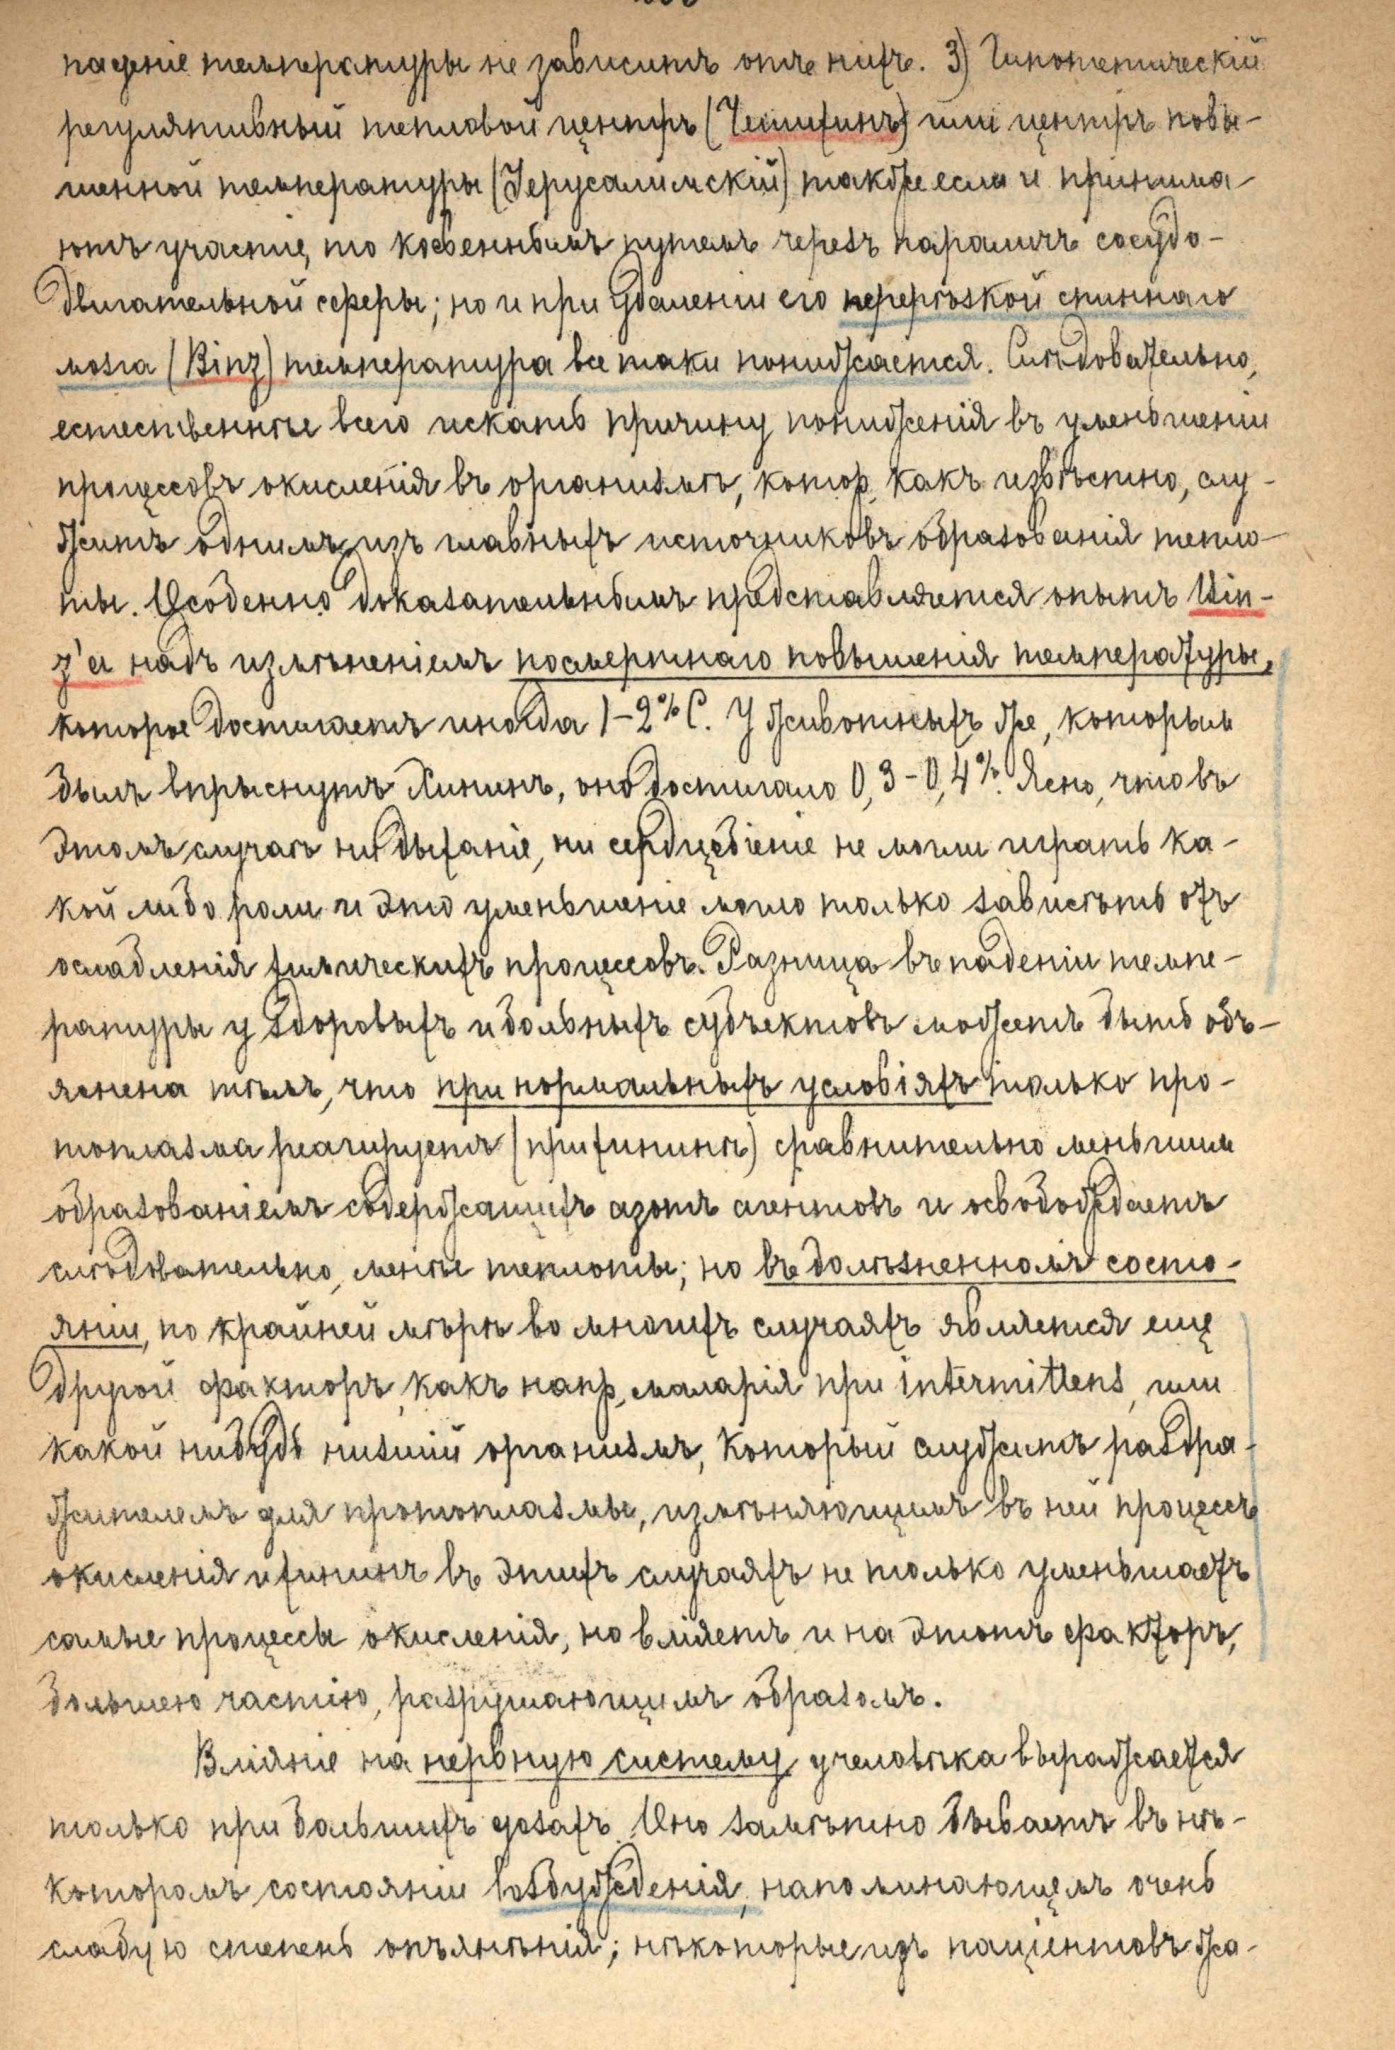 паденіе температуры не зависитъ отъ нихъ. 3) Гипотетическій
регулятивный тепловой центръ (Чешихинъ) или центръ повы-
шенной температуры (Іерусалимскій) также если и принима-
ютъ участіе, то косвеннымъ путемъ черезъ параличъ сосудо-
двигательной сферы; но и при удаленіи его перерѣзкой спиннаго
мозга (Binz) температура все таки понижается. Слѣдовательно,
естественнѣе всего искать причину пониженія въ уменьшеніи
процессовъ окисленія въ организмѣ, котор. какъ извѣстно, слу-
житъ однимъ изъ главныхъ источниковъ образованія тепло-
ты. Особенно доказательнымъ представляется опытъ Bin-
z'a надъ измѣненіемъ посмертнаго повышенія температуры,
которое достигаетъ иногда 1-2% С. У животныхъ же, которымъ
былъ впрыснутъ Хининъ, оно достигало 0,3-0,4%. Ясно, что въ
этомъ случаѣ ни дыханіе, ни сердцебіеніе не могли играть ка-
кой либо роли и это уменьшеніе могло только зависѣть отъ
ослабленія химическихъ процессовъ. Разница въ паденіи темпе-
ратуры у здоровыхъ и больныхъ субъектовъ можетъ быть объ-
яснена тѣмъ, что при нормальныхъ условіяхъ только про-
топлазма реагируетъ (при хининѣ) сравнительно меньшимъ
образованіемъ содержащихъ азотъ агентовъ и освобождаетъ
слѣдовательно, менѣе теплоты; но въ болѣзненномъ состо-
яніи, по крайней мѣрѣ во многихъ случаяхъ является еще
другой факторъ, какъ напр. малярія при intermittens, или
какой нибудь низшій организмъ, который служитъ раздра-
жителемъ для протоплазмы, измѣняющимъ въ ней процессъ
окисленія и хининъ въ этихъ случаяхъ не только уменьшаетъ
самые процессы окисленія, но вліяетъ и на этотъ факторъ,
большею частію, разрушающимъ образомъ.
Вліяніе на нервную систему у человѣка выражается
только при большихъ дозахъ. Оно замѣтно бываетъ въ нѣ-
которомъ состояніи возбужденія, напоминающемъ очень
слабую степень опьянѣнія; нѣкоторые изъ паціентовъ жа-